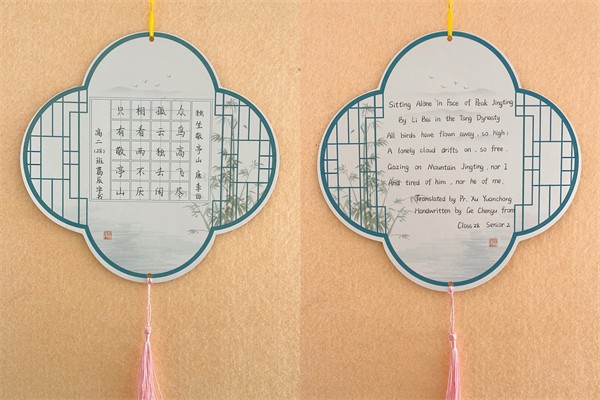 独坐敬亭山 唐 李白
众鸟高飞尽
孤云独去闲
相看两不厌
只有敬亭山
高二(28)班葛书
Sitting Alone in Face of Peak Jingting
By Li Bai in the Tang Dynasty
All birds have flown away, so high;
A lonely cloud drifts on, so free.
Gazing on Mountain Jingting, nor I
And tired of him, nor he of me.
Translated by Pr. Xu Yuanchong
Handwritten by Ge Chenyu from
Class 28 Senior 2